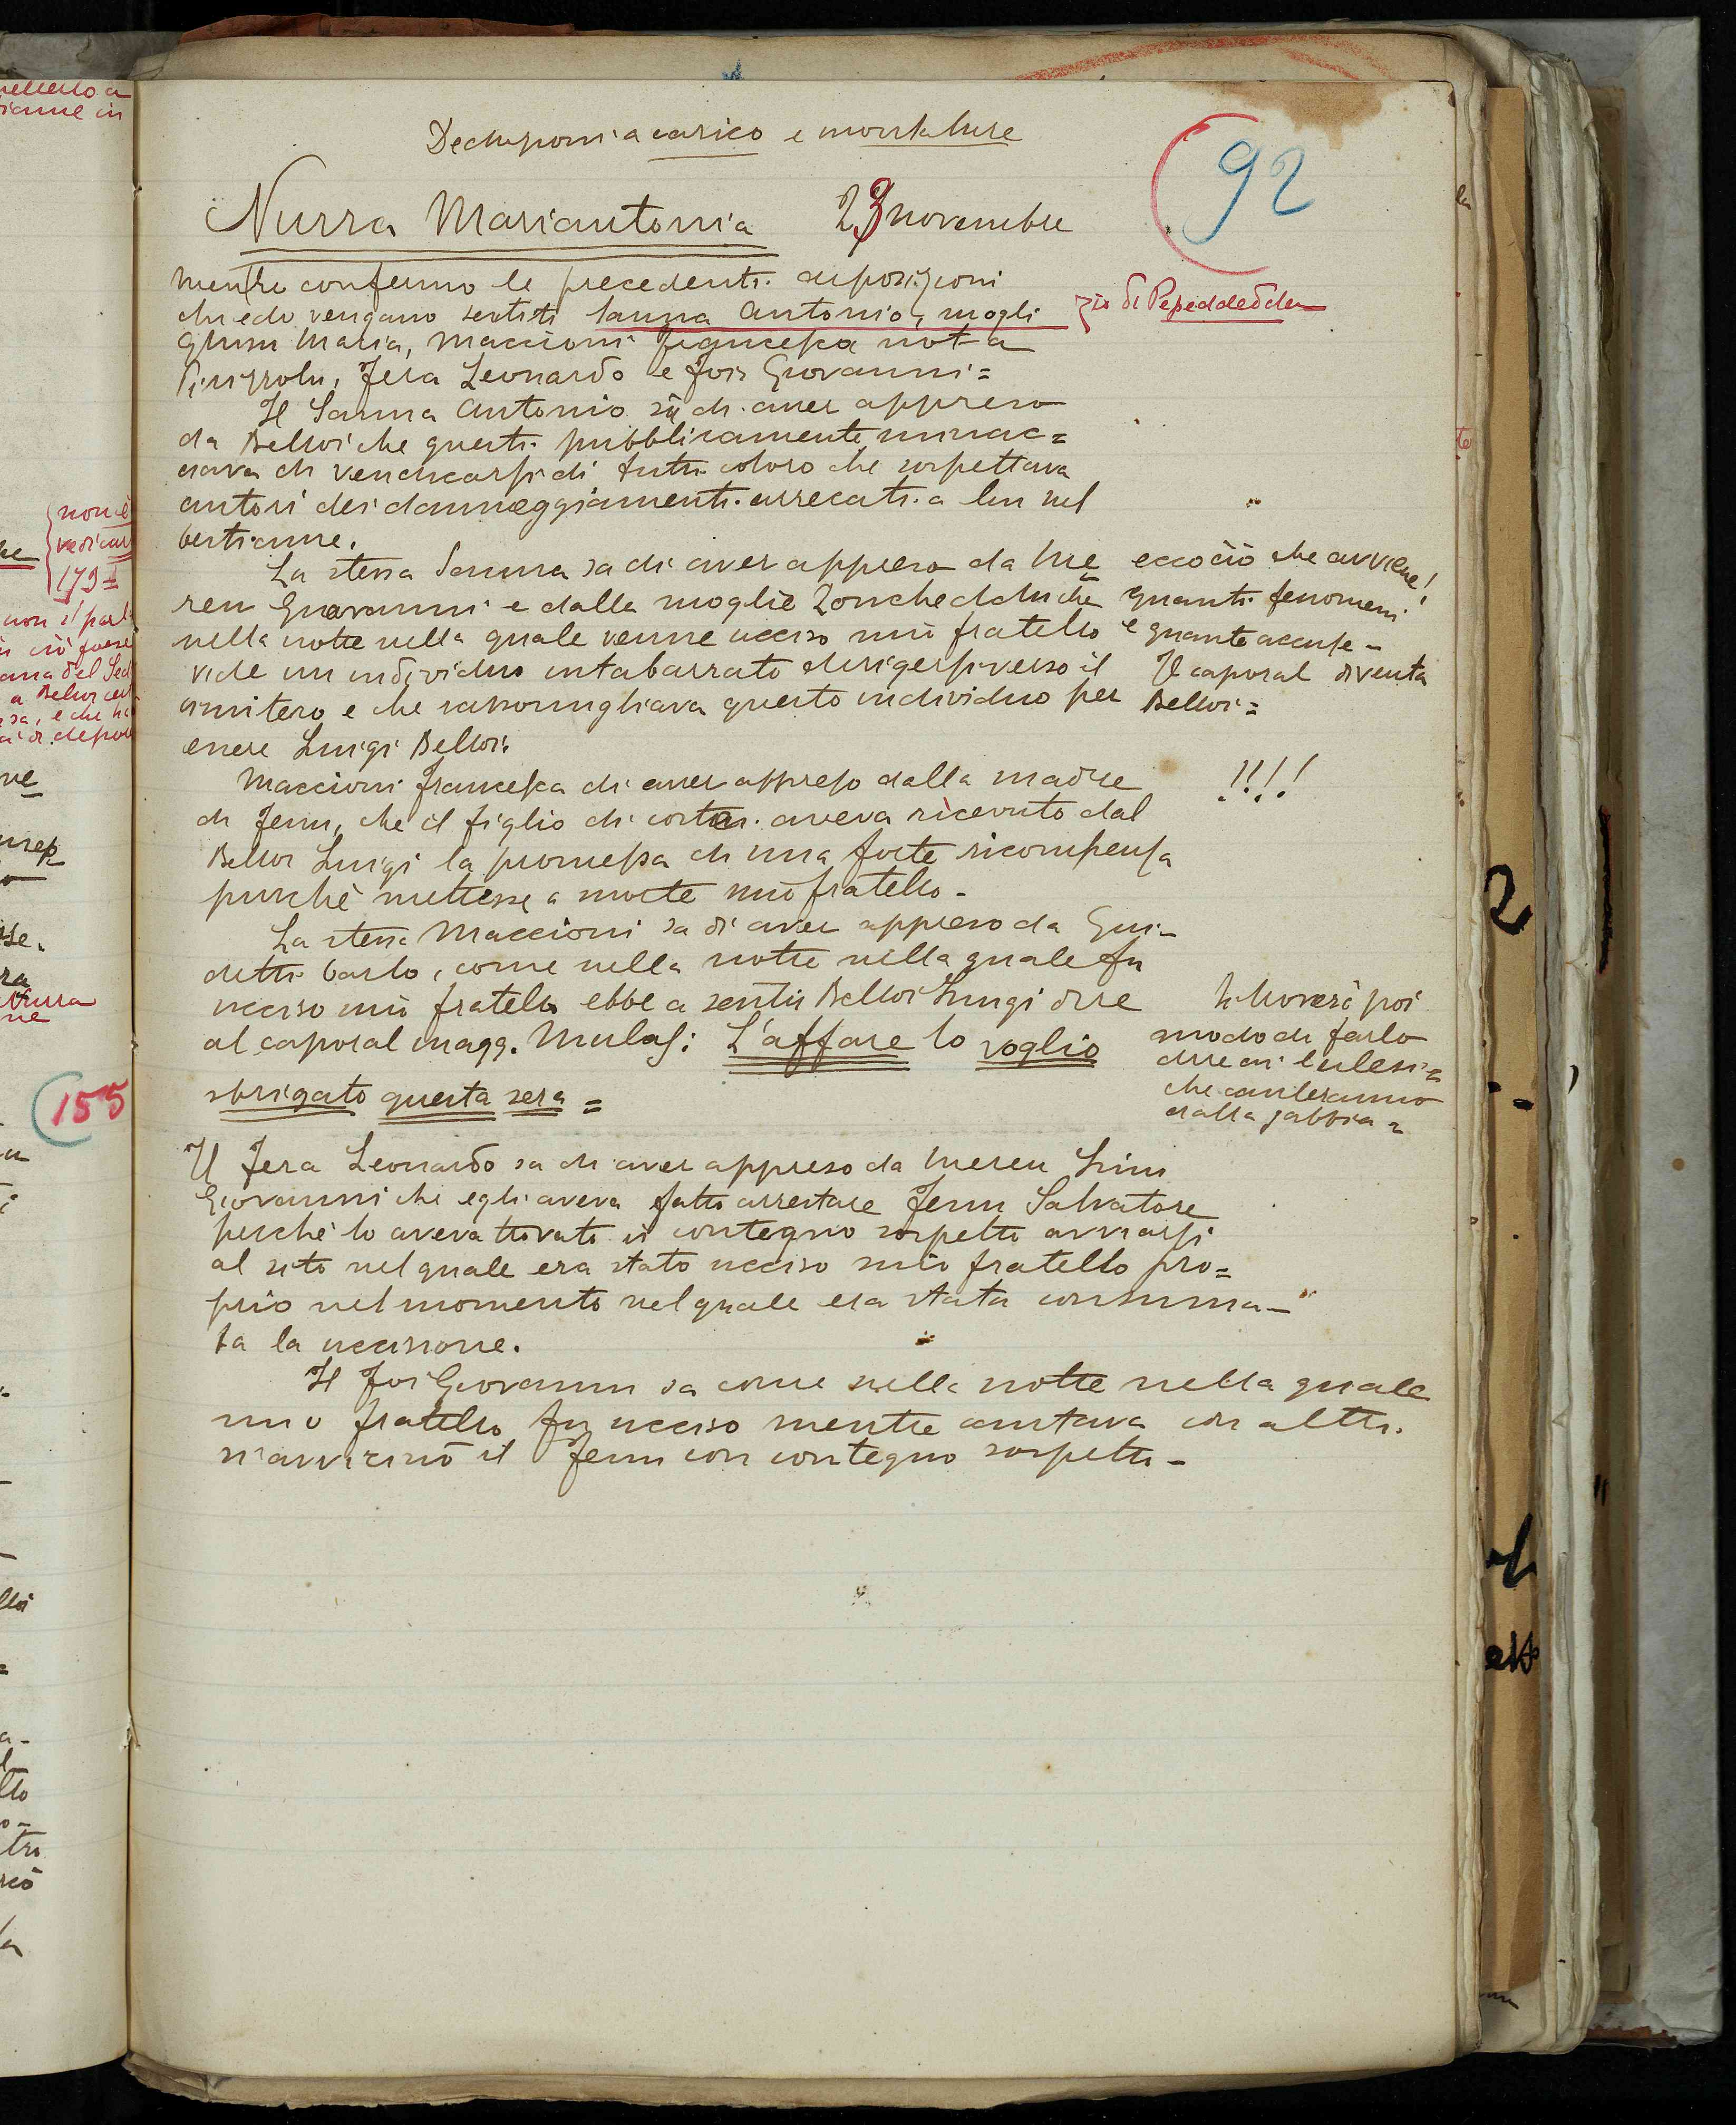 a carico e montature
92
Nurra Mariantonia 23 novembre
mentre confermo le precedenti deposizioni
chiedo vengano sentiti Sanna Antonio, mogli
zio di Pepeddedda
Maria, Maccioni Francesca nota
Fera Leonardo e Fois Giovanni=
Il Sanna Antonio sà di aver appreso
da Belloi che questi pubblicamente minac=
ciava di vendicarsi di tutti coloro che sospettava
autori dei danneggiamenti arrecati a lui nel
bestiame.
La stessa Sanna sa di aver appreso da Me
reu Giovanni e dalla moglie che
nella notte nella quale venne ucciso mio fratello
vide un individuo intabarrato dirigersi verso il
cimitero e che rassomigliava questo individuo per
essere Luigi Belloi.
ecco ciò che avviene!
quanti fenomeni
e quante accuse -
Il caporal diventa
Belloi=
Maccioni Francesca di aver appreso dalla madre
di Fenu, che il figlio di costei aveva ricevuto dal
Belloi Luigi la promessa di una forte ricompensa
purchè mettesse a morte mio fratello -
!!!!
La stessa Maccioni sa di aver appreso da Gui-
detti Carlo, come nella notte nella quale fu
ucciso mio fratello ebbe a sentir Belloi Luigi dire
al caporal magg. Mulas: L'affare lo voglio
sbrigato questa sera =
poi
modo di farlo
dire ai
che canteranno
dalla gabbia =
Il Fera Leonardo sa di aver appreso da Mereu
Giovanni che egli aveva fatto arrestare Fenu Salvatore
perchè lo aveva trovato in contegno sospetto avviarsi
al sito nel quale era stato ucciso mio fratello pro=
prio nel momento nel quale era stata consuma-
ta la uccisione.
Il Fois Giovanni sa come nella notte nella quale
mio fratello fu ucciso mentre cantava con altri
si avvicinò il Fenu con contegno sospetto -
155